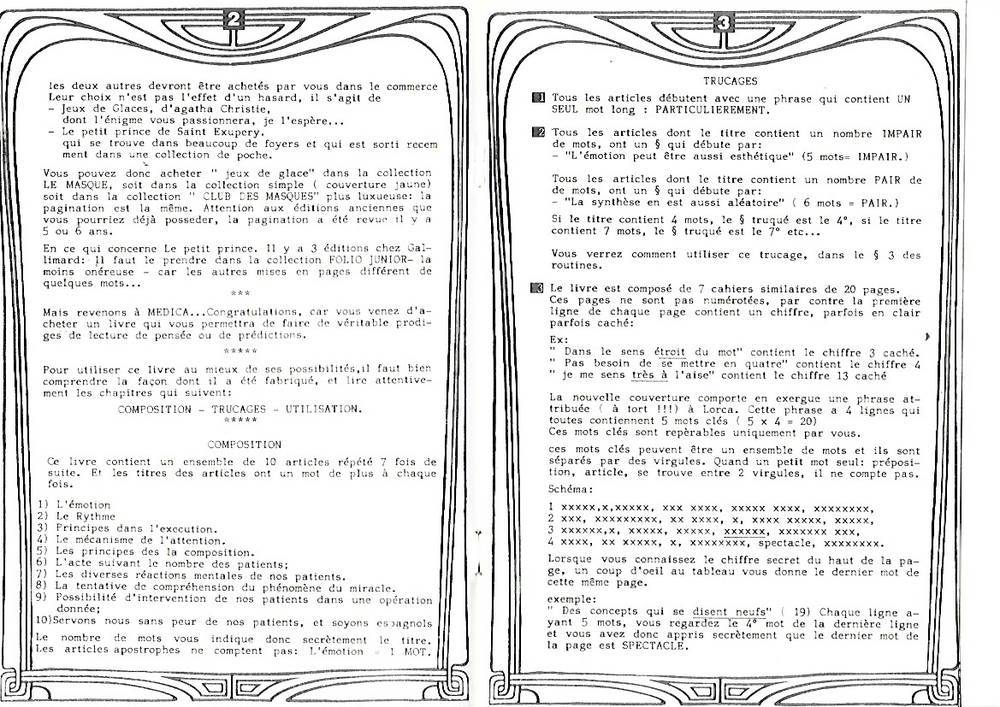 2
les deux autres devront être achetés par vous dans le commerce
Leur choix n'est pas l'effet d'un hasard, il s'agit de
- Jeux de Glaces, d'agatha Christie,
dont l'énigme vous passionnera, je l'espère...
- Le petit prince de Saint Exupery.
qui se trouve dans beaucoup de foyers et qui est sorti recem
ment dans une collection de poche.
Vous pouvez donc acheter " jeux de glace" dans la collection
LE MASQUE, soit dans la collection simple ( couverture jaune)
soit dans la collection " CLUB DES MASQUES" plus luxueuse: la
pagination est la même. Attention aux éditions anciennes que
vous pourriez déjà posseder, la pagination a été revue il y a
5 ou 6 ans.
En ce qui concerne Le petit prince. Il y a 3 éditions chez Gal-
limard: Il faut le prendre dans la collection FOLIO JUNIOR- la
moins onéreuse - car les autres mises en pages différent de
quelques mots...
***
Mais revenons à MEDICA...Congratulations, car vous venez d'a-
cheter un livre qui vous permettra de faire de véritable prodi-
ges de lecture de pensée ou de prédictions.
*****
Pour utiliser ce livre au mieux de ses possibilités,il faut bien
comprendre la façon dont il a été fabriqué, et lire attentive-
ment les chapitres qui suivent:
COMPOSITION - TRUCAGES - UTILISATION.
*****
COMPOSITION
Ce livre contient un ensemble de 10 articles répété 7 fois de
suite. Et les titres des articles ont un mot de plus à chaque
fois.
1) L'émotion
2) Le Rythme
3) Principes dans l'execution.
4) Le mécanisme de l'attention.
5) Les principes des la composition.
6) L'acte suivant le nombre des patients;
7) Les diverses réactions mentales de nos patients.
8) La tentative de compréhension du phénomène du miracle.
9) Possibilité d'intervention de nos patients dans une opération
donnée;
10)Servons nous sans peur de nos patients, et soyons espagnols
Le nombre de mots vous indique donc secrètement le titre.
Les articles apostrophes ne comptent pas: L'émotion = 1 MOT.
3
TRUCAGES
1 Tous les articles débutent avec une phrase qui contient UN
SEUL mot long : PARTICULIEREMENT.
2 Tous les articles dont le titre contient un nombre IMPAIR
de mots, ont un § qui débute par:
- "L'émotion peut être aussi esthétique" (5 mots= IMPAIR.)
Tous les articles dont le titre contient un nombre PAIR de
de mots, ont un § qui débute par:
- "La synthèse en est aussi aléatoire" ( 6 mots = PAIR.)
Si le titre contient 4 mots, le § truqué est le 4°, si le titre
contient 7 mots, le § truqué est le 7° etc...
Vous verrez comment utiliser ce trucage, dans le § 3 des
routines.
3 Le livre est composé de 7 cahiers similaires de 20 pages.
Ces pages ne sont pas numérotées, par contre la première
ligne de chaque page contient un chiffre, parfois en clair
parfois caché:
Ex:
" Dans le sens étroit du mot" contient le chiffre 3 caché.
" Pas besoin de se mettre en quatre" contient le chiffre 4
" je me sens très à l'aise" contient le chiffre 13 caché
La nouvelle couverture comporte en exergue une phrase at-
tribuée ( à tort !!!) à Lorca. Cette phrase a 4 lignes qui
toutes contiennent 5 mots clés ( 5 x 4 = 20)
Ces mots clés sont repèrables uniquement par vous.
ces mots clés peuvent être un ensemble de mots et ils sont
séparés par des virgules. Quand un petit mot seul: préposi-
tion, article, se trouve entre 2 virgules, il ne compte pas.
Schéma:
1 xxxxx,x,xxxxx, xxx xxxx, xxxxx xxxx, xxxxxxxx,
2 xxx, xxxxxxxxx, xx xxxx, x, xxxx xxxxx, xxxxx,
3 xxxxxx,x, xxxxx, xxxxx, xxxxxx, xxxxxxx xxx,
4 xxxx, xx xxxxx, x, xxxxxxxx, spectacle, xxxxxxxx.
Lorsque vous connaissez le chiffre secret du haut de la pa-
ge, un coup d'oeil au tableau vous donne le dernier mot de
cette même page.
exemple:
" Des concepts qui se disent neufs" ( 19) Chaque ligne a-
yant 5 mots, vous regardez le 4° mot de la dernière ligne
et vous avez donc appris secrètement que le dernier mot de
la page est SPECTACLE.